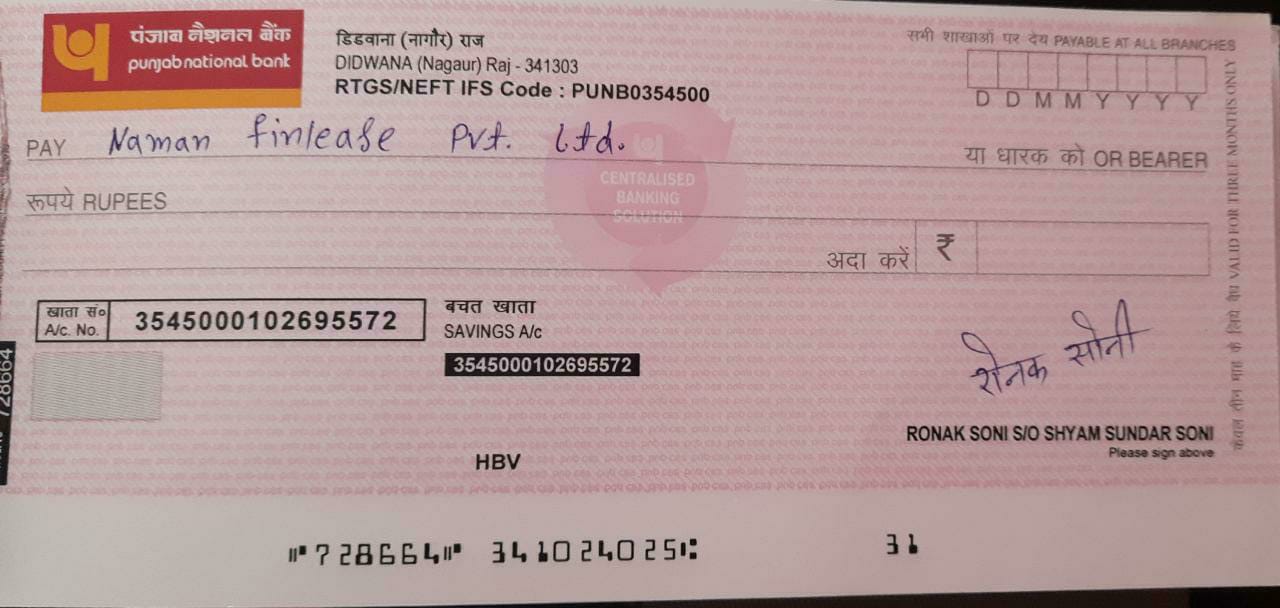 पंजाब नैशनल बैंक
punjab national bank
डिडवाना (नागौर) राज
DIDWANA (Nagaur) Raj - 341303
RTGS/NEFT IFS Code : PUNB0354500
सभी शाखाओं पर देय PAYABLE AT ALL BRANCHES
D D M M Y Y Y Y
PAY Naman Finlease Pvt. Ltd.
या धारक को OR BEARER
CENTRALISED
BANKING
SOLUTION
रूपये RUPEES
अदा करें ₹
खाता सं०
A/c. No.
3545000102695572
बचत खाता
SAVINGS A/c
3545000102695572
रोनक सोनी
RONAK SONI S/O SHYAM SUNDAR SONI
Please sign above
HBV
केवल तीन माह के लिये वैध VALID FOR THREE MONTHS ONLY
728664
⑈728664⑈ 341024025⑆ 31